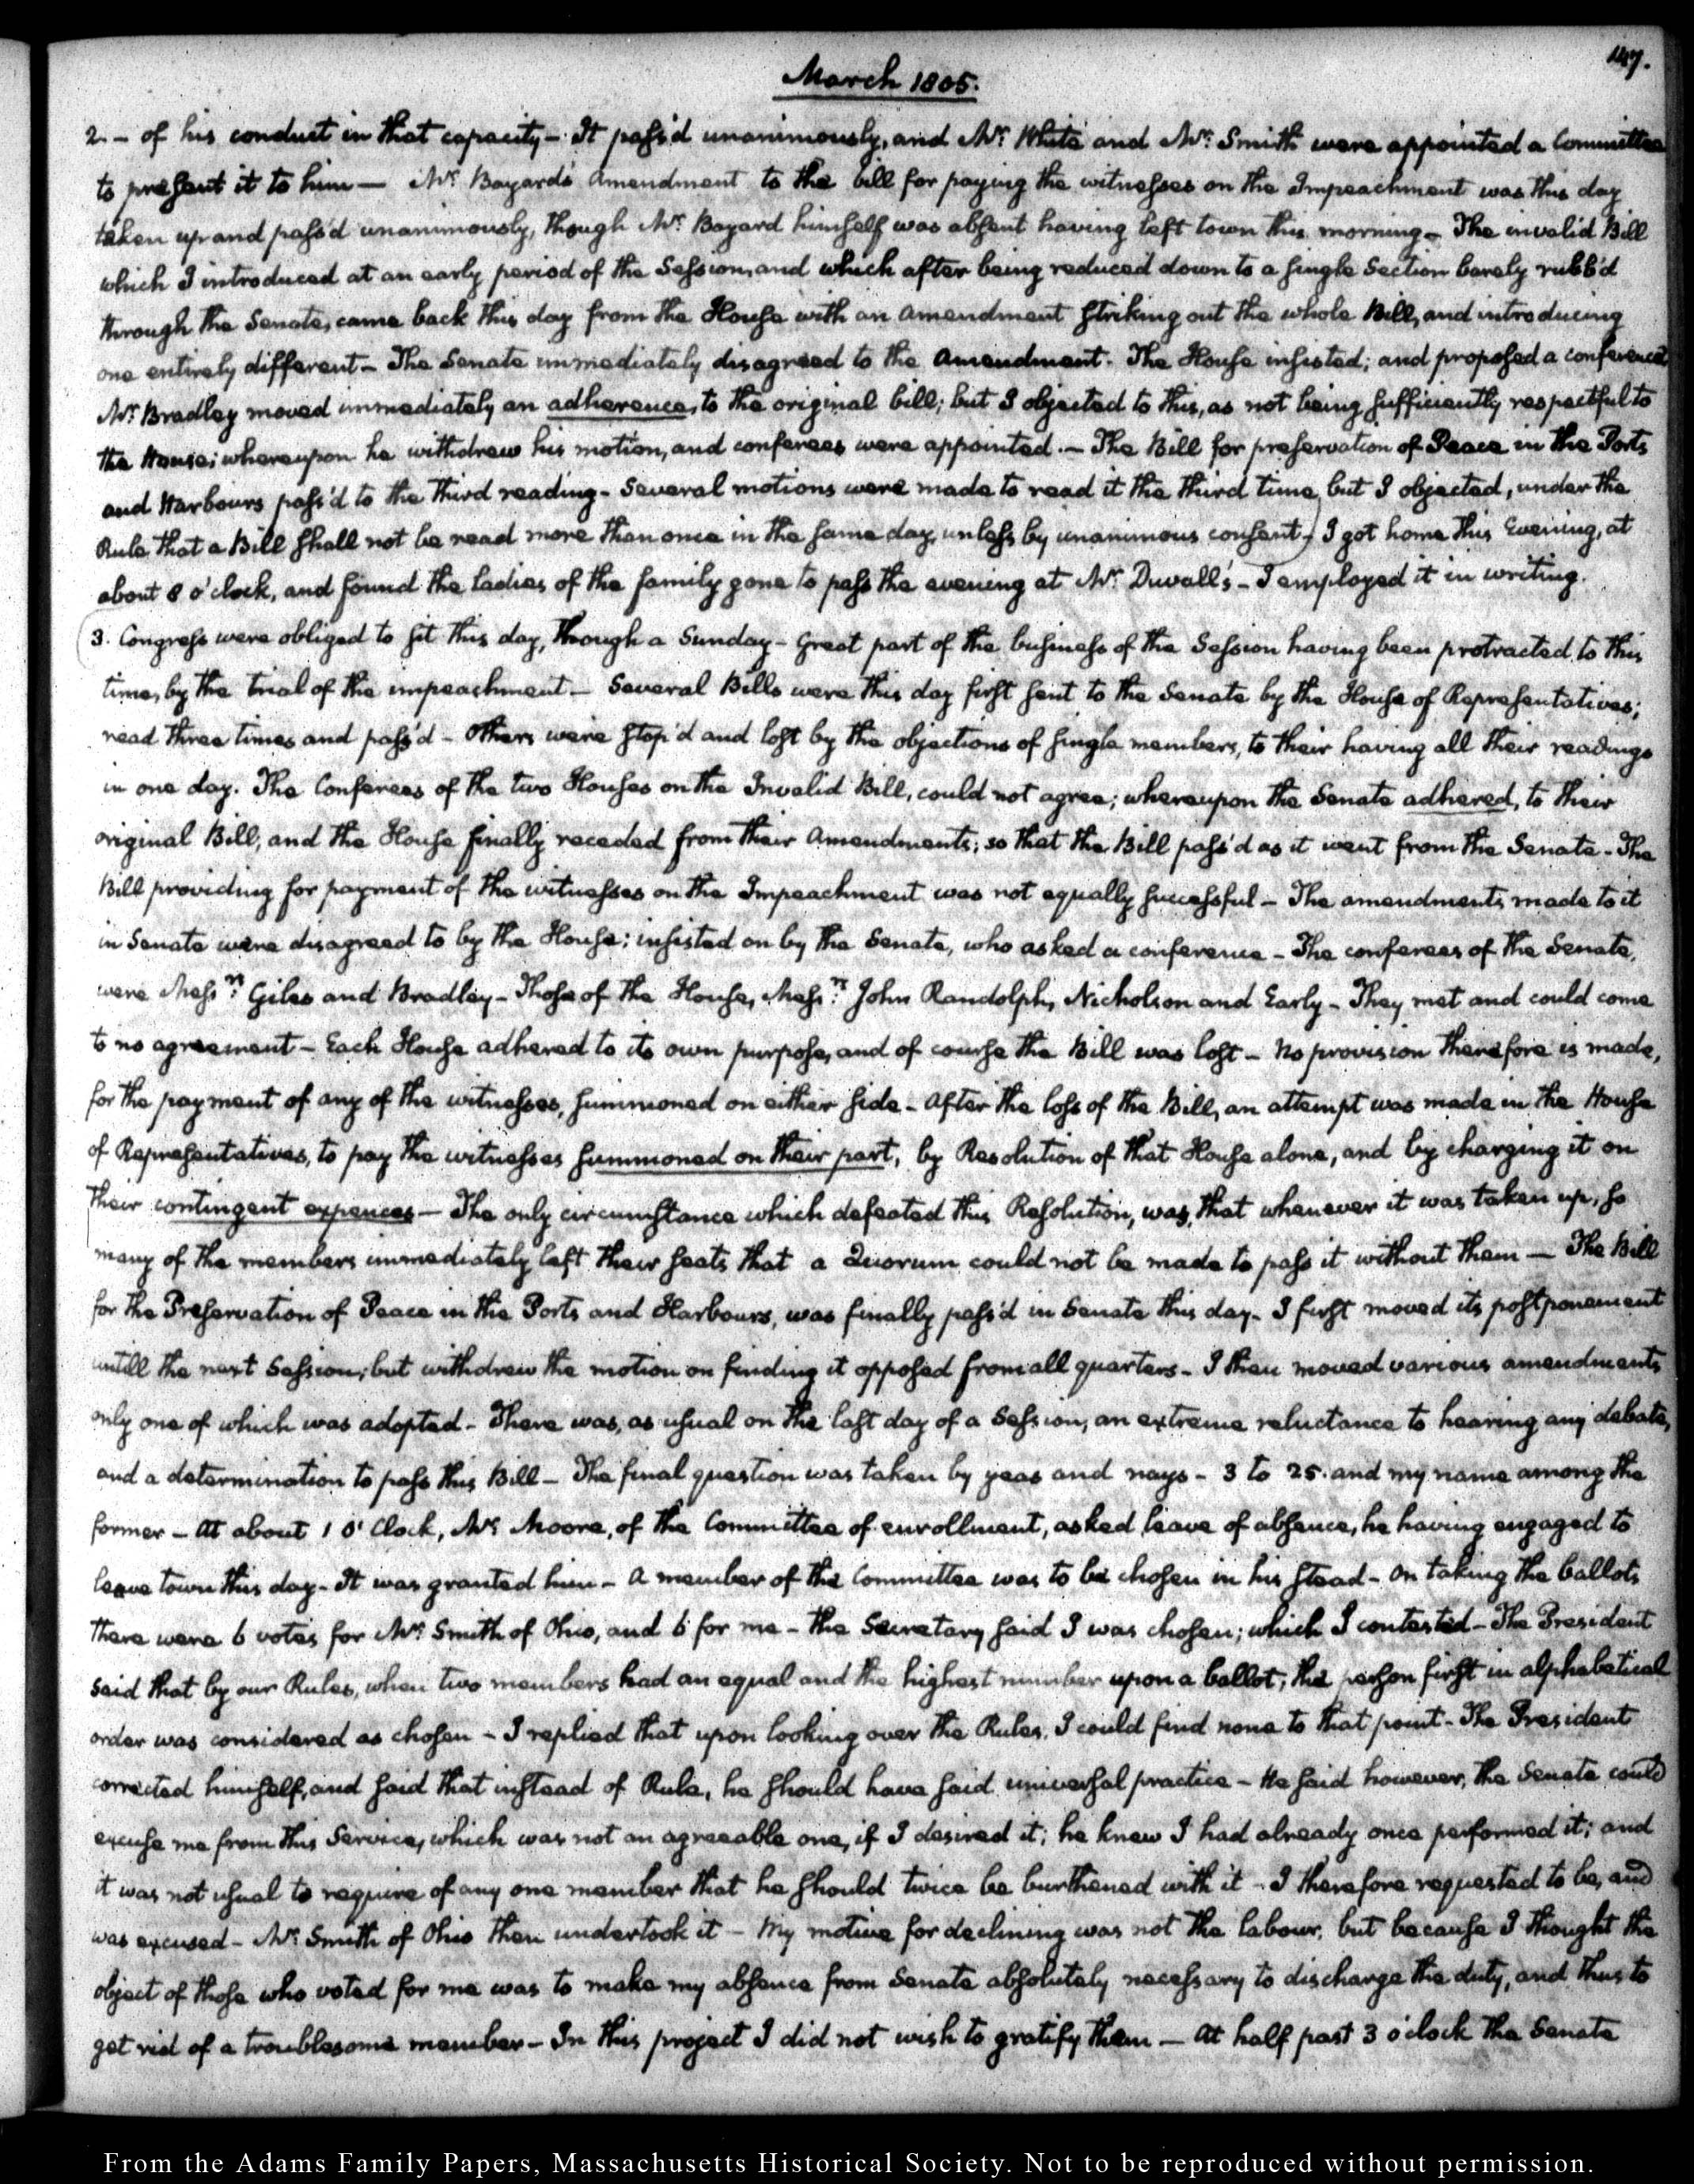 147.
March 1805.
2. - of his conduct in that capacity - It pass'd unanimously, and Mr. White and Mr. Smith were appointed a Committee
to present it to him — Mr. Bayard's amendment to the bill for paying the witnesses on the Impeachment was this day
taken up and pass'd unanimously, though Mr. Bayard himself was absent having left town this morning - The invalid Bill
which I introduced at an early period of the Session, and which after being reduced down to a single Section barely rubb'd
through the Senate, came back this day from the House with an amendment striking out the whole Bill, and introducing
one entirely different - The Senate immediately disagreed to the amendment. The House insisted; and proposed a conference
Mr. Bradley moved immediately an adherence, to the original bill; but I objected to this, as not being sufficiently respectful to
the House; whereupon he withdrew his motion, and conferees were appointed. - The Bill for preservation of Peace in the Ports
and Harbours pass'd to the third reading - Several motions were made to read it the third time, but I objected, under the
Rule that a Bill shall not be read more than once in the same day, unless by unanimous consent - I got home this Evening, at
about 8 o'clock, and found the Ladies of the family gone to pass the evening at Mr. Duvall's - I employed it in writing.
3. Congress were obliged to sit this day, though a Sunday - Great part of the business of the Session having been protracted to this
time, by the trial of the impeachment - Several Bills were this day first sent to the Senate by the House of Representatives;
read three times and pass'd - Others were stop'd and lost by the objections of single members, to their having all their readings
in one day. The Conferees of the two Houses on the Invalid Bill, could not agree; whereupon the Senate adhered, to their
original Bill, and the House finally receded from their amendments; so that the Bill pass'd as it went from the Senate - The
Bill providing for payment of the witnesses on the Impeachment was not equally successful - The amendments made to it
in Senate were disagreed to by the House; insisted on by the Senate, who asked a conference - The conferees of the Senate,
were Messrs. Giles and Bradley - Those of the House, Messrs. John Randolph, Nicholson and Early - They met and could come
to no agreement - Each House adhered to its own purpose, and of course the Bill was lost - No provision therefore is made,
for the payment of any of the witnesses, summoned on either side - After the loss of the Bill, an attempt was made in the House
of Representatives, to pay the witnesses summoned on their part, by Resolution of that House alone, and by charging it on
their contingent expences - The only circumstance which defeated this Resolution, was, that whenever it was taken up, so
many of the members immediately left their seats that a Quorum could not be made to pass it without them — The Bill
for the Preservation of Peace in the Ports and Harbours, was finally pass'd in Senate this day - I first moved its postponement
untill the next Session; but withdrew the motion on finding it opposed from all quarters - I then moved various amendments
only one of which was adopted - There was, as usual on the last day of a Session, an extreme reluctance to hearing any debate,
and a determination to pass this Bill - The final question was taken by yeas and nays - 3 to 25. and my name among the
former - At about 1 o'Clock, Mr. Moore, of the Committee of enrollment, asked leave of absence, he having engaged to
leave town this day - It was granted him - A member of the Committee was to be chosen in his stead - On taking the ballots
there were 6 votes for Mr. Smith of Ohio, and 6 for me - the Secretary said I was chosen; which I contested - The President
said that by our Rules, when two members had an equal and the highest number upon a ballot, the person first in alphabetical
order was considered as chosen - I replied that upon looking over the Rules, I could find none to that point - The President
corrected himself, and said that instead of Rule, he should have said universal practice - He said however, the Senate could
excuse me from this Service, which was not an agreeable one, if I desired it; he knew I had already once performed it; and
it was not usual to require of any one member that he should twice be burthened with it - I therefore requested to be, and
was excused - Mr. Smith of Ohio then undertook it - My motive for declining was not the labour, but because I thought the
object of those who voted for me was to make my absence from Senate absolutely necessary to discharge the duty, and thus to
get rid of a troublesome member - In this project I did not wish to gratify them — At half past 3 o'clock the Senate
From the Adams Family Papers, Massachusetts Historical Society. Not to be reproduced without permission.